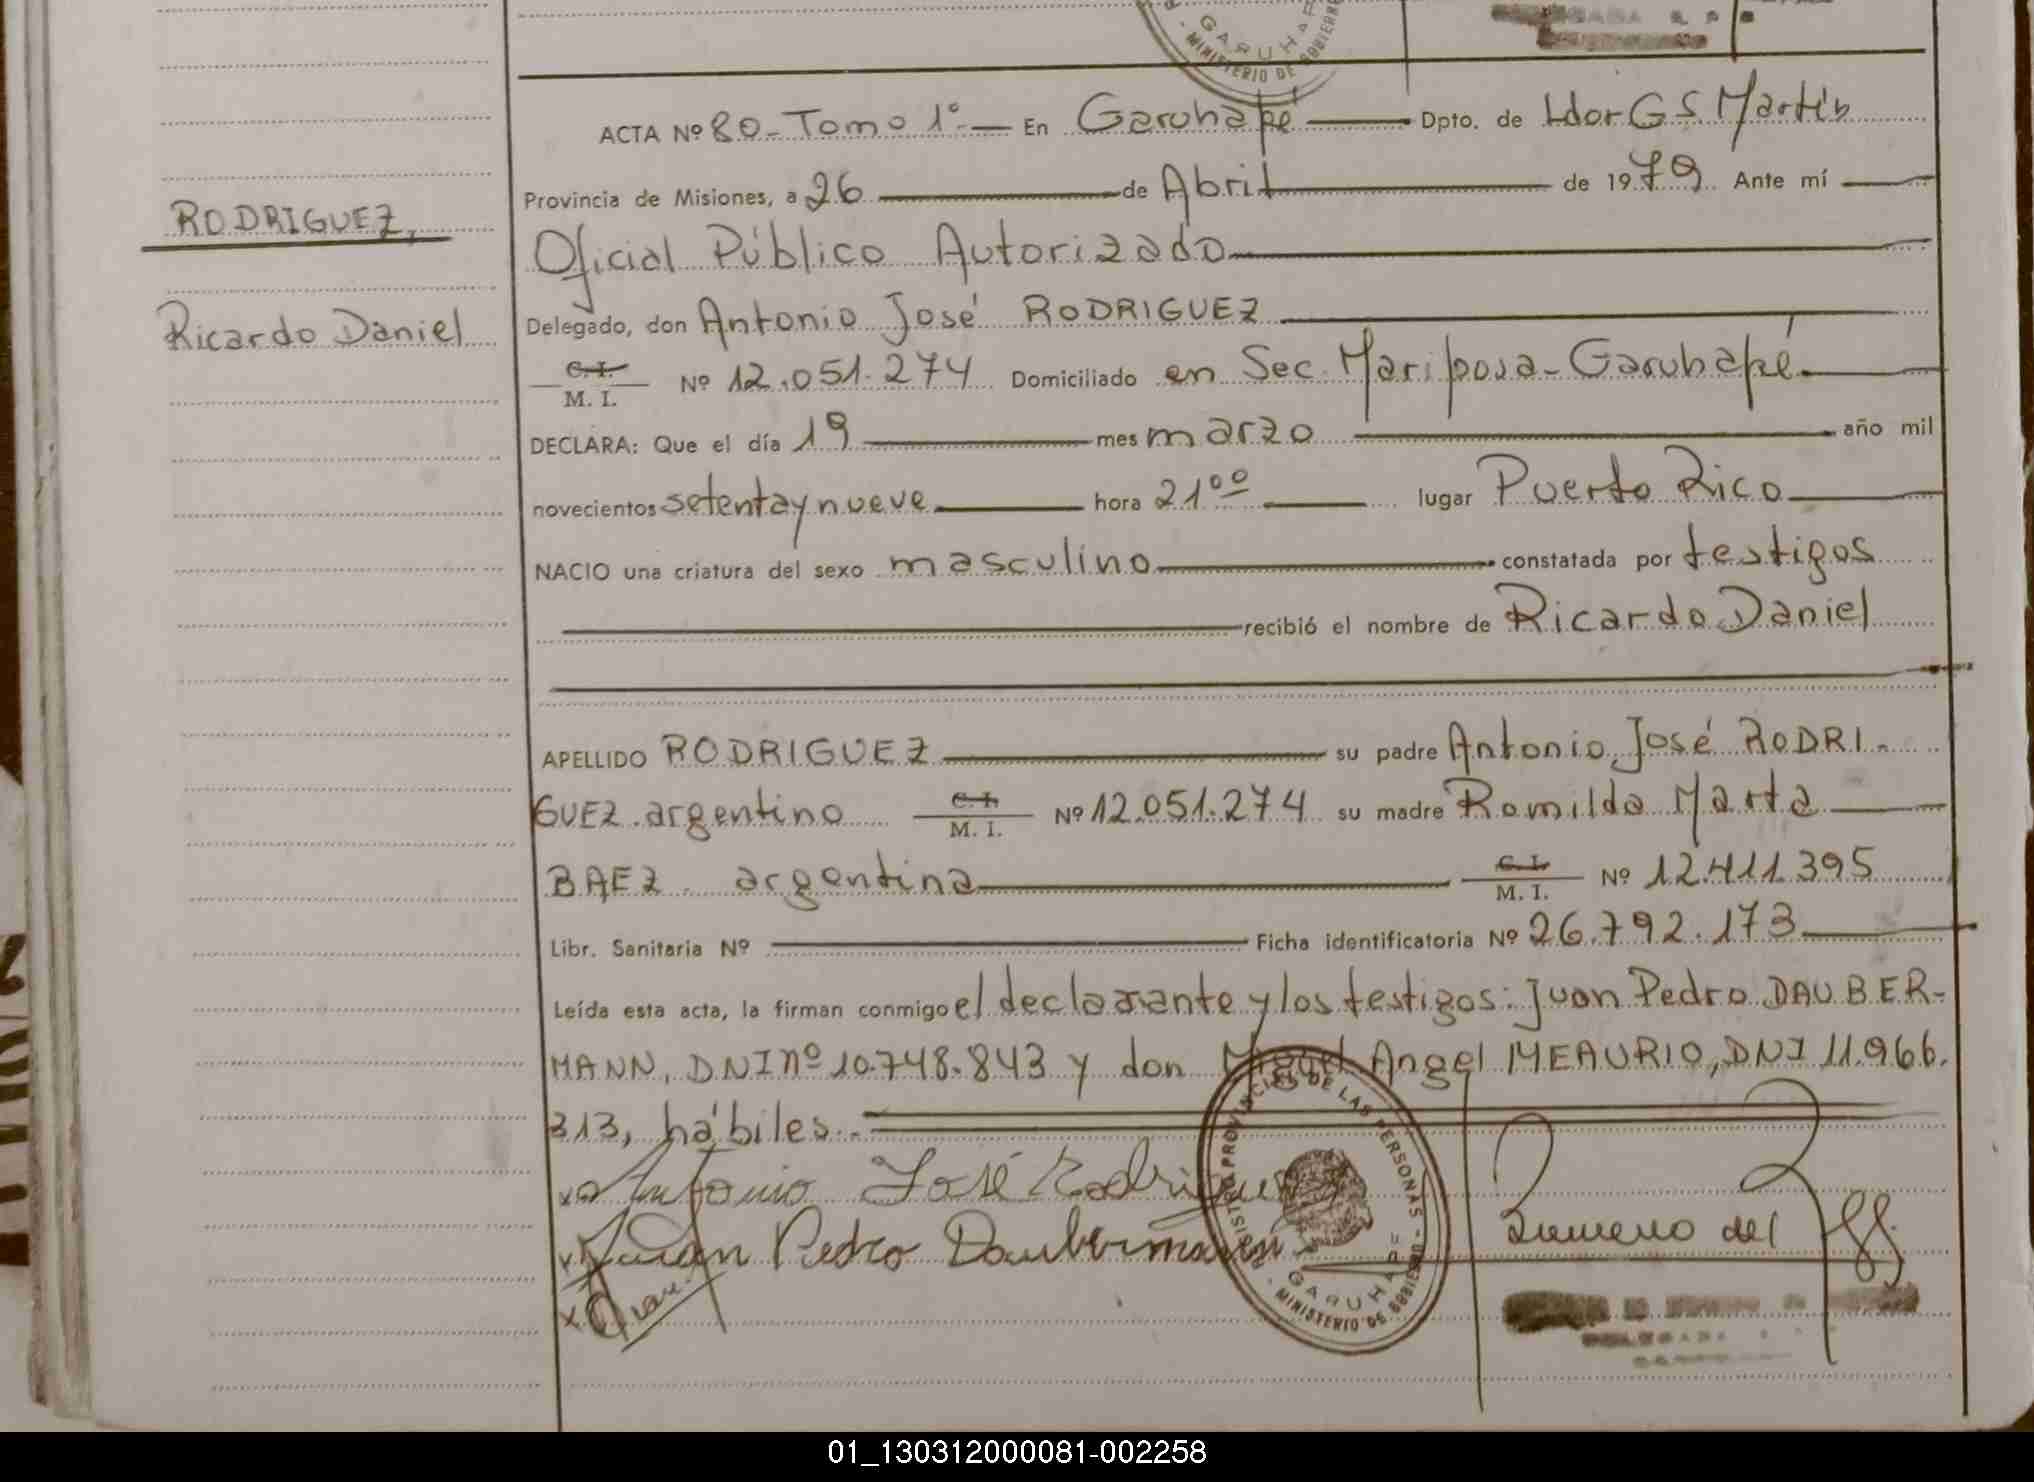 GARUHAPE
MINISTERIO DE GOBIERNO
ACTA Nº 80 - Tomo 1º.- En Garuhapé Dpto. de Ldor G S Martín
Provincia de Misiones, a 26 de Abril de 1979 Ante mí
RODRIGUEZ,
Oficial Público Autorizado
Ricardo Daniel
Delegado, don Antonio José RODRIGUEZ
C. I.
M. I. Nº 12.051.274 Domiciliado en Sec. Mariposa - Garuhapé.
DECLARA: Que el día 19 mes marzo año mil
novecientos setenta y nueve hora 21 00 lugar Puerto Rico
NACIO una criatura del sexo masculino constatada por testigos
recibió el nombre de Ricardo Daniel
APELLIDO RODRIGUEZ su padre Antonio José RODRI-
GUEZ. argentino C. I. M. I. Nº 12.051.274 su madre Romilda Marta
BAEZ. argentina C. I. M. I. Nº 12.411.395
Libr. Sanitaria Nº Ficha identificatoria Nº 26.792.173
Leída esta acta, la firman conmigo el declarante y los testigos: Juan Pedro DAUBER-
MANN, DNI nº 10.748.843 y don Miguel Angel MEAURIO, DNI 11.966.
313, hábiles.-
x Antonio José Rodriguez
x Juan Pedro Daubermann
REGISTRO PROVINCIAL DE LAS PERSONAS
GARUHAPE
MINISTERIO DE GOBIERNO
01_130312000081-002258